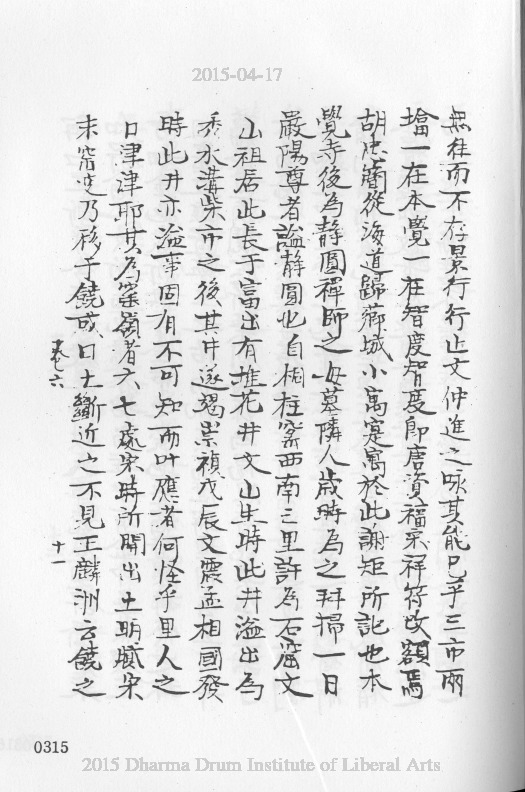 2015-04-17
無在而不存景行行止文仲進之咏其能已乎三市兩
壋一在本覺一在智度智度即唐資福宋祥符改額焉
胡忠簡從海道歸薌城小寓寔寓於此謝矩所記也本
覺寺後為静圓禪師之母墓隣人歲時為之拜掃一日
嚴陽尊者謚静圓也自桐柱窯西南三里許為石窟文
山祖居此長于富出有推花井文山生時此井溢出為
秀水溝柴市之後其井遂竭崇禎戊辰文震孟相國發
時此井亦溢事固有不可知而叶應者何怪乎里人之
口津津耶其為窯嶺者六七處宋時所開出土明膩宋
末窑变乃移于饒或曰土斷近之不見王麟洲云饒之
卷六
十一
0315
2015 Dharma Drum Institute of Liberal Arts